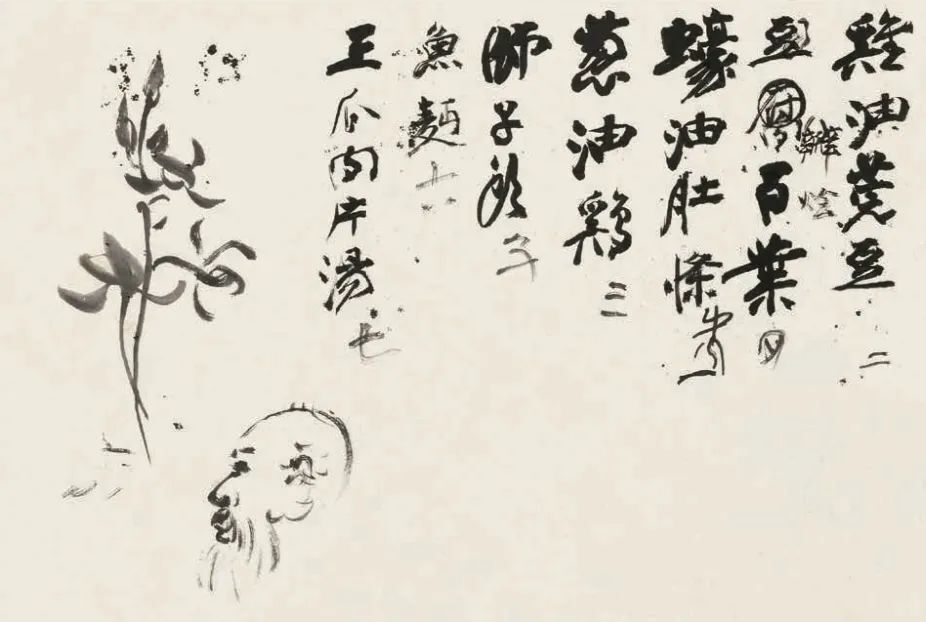 雞油豆 二
豆百葉 四
燴
蠔油肚條 一
葱油鷄 三
師子頭 五
魚麵 六
王瓜肉片湯 七